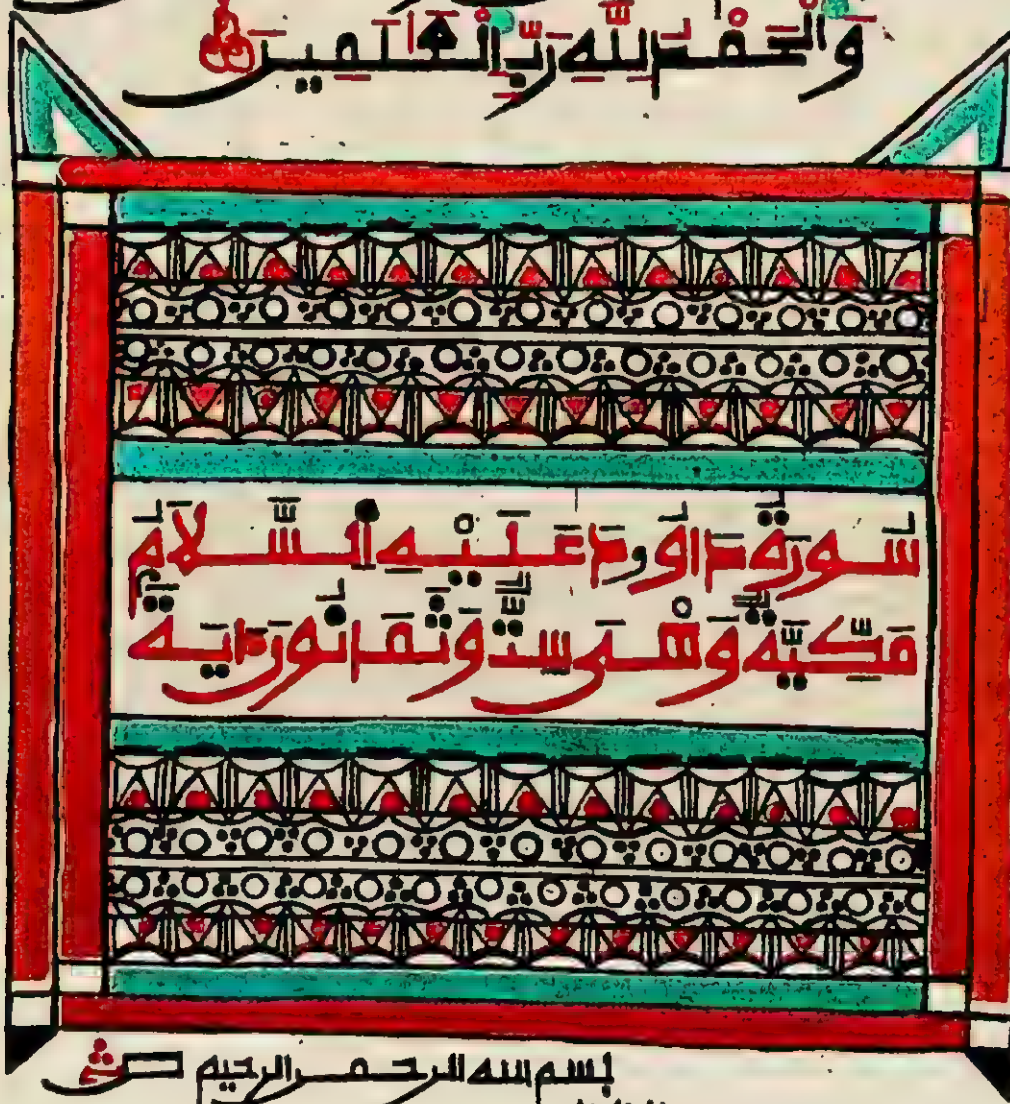 وَالْحَمْدُ لِلَّهِ رَبِّ الْعَٰلَمِينَ
سُورَةُ دَاوُودَ عَلَيْهِ السَّلَامُ
مَكِّيَّةٌ وَهْىَ سِتٌّ وَثَمَانُونَ ءَايَةً
بسم الله الرحمن الرحيم ص